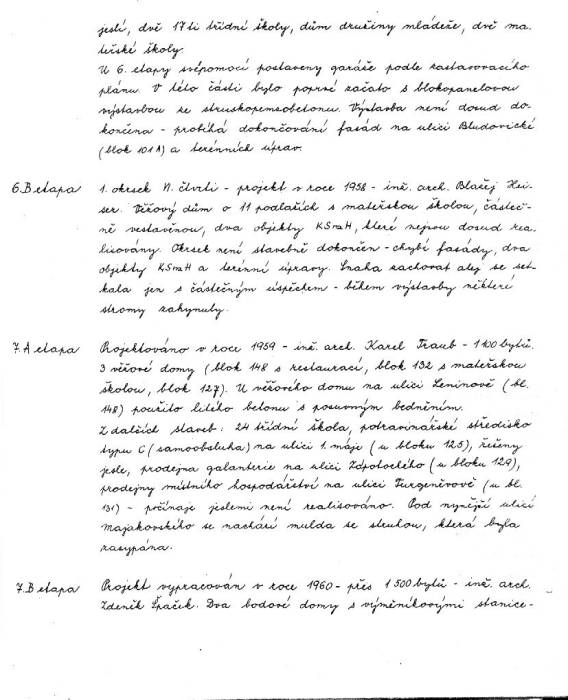 jeslí, dvě 17ti třídní školy, dům družiny mládeže, dvě ma-
teřské školy.
U 6. etapy svépomocí postaveny garáže podle zastavovacího
plánu. V této části bylo poprvé začato s blokopanelovou
výstavbou ze struskopemzobetonu. Výstavba není dosud do-
končena - probíhá dokončování fasád na ulici Bludovické
(blok 101A) a terénních úprav.
6.B etapa 1. okrsek II. čtvrti - projekt v roce 1958 - inž. arch. Blažej Hei-
ser. Věžový dům o 11 podlažích s mateřskou školou, částeč-
ně vestavěnou, dva objekty KSmH, které nejsou dosud rea-
lisovány. Okrsek není stavebně dokončen - chybí fasády, dva
objekty KSmH a terénní úpravy. Snaha zachovat alej se set-
kala jen s částečným úspěchem - během výstavby některé
stromy zahynuly.
7.A etapa Projektováno v roce 1959 - inž. arch. Karel Traub - 1 100 bytů.
3 věžové domy (blok 148 s restaurací, blok 132 s mateřskou
školou, blok 127). U věžového domu na ulici Leninově (bl.
148) použito litého betonu s posuvným bedněním.
Z dalších staveb: 24 třídní škola, potravinářské středisko
typu C (samoobsluha) na ulici 1. máje (u bloku 125), řešeny
jesle, prodejna galanterie na ulici Zápotockého (u bloku 129),
prodejny místního hospodářství na ulici Turgeněvově (u bl.
131) - počínaje jeslemi není realisováno. Pod nynější ulicí
Majakovského se nachází mulda se struhou, která byla
zasypána.
7.B etapa Projekt vypracován v roce 1960 - přes 1 500 bytů - inž. arch.
Zdeněk Špaček. Dva bodové domy s výměníkovými stanice-